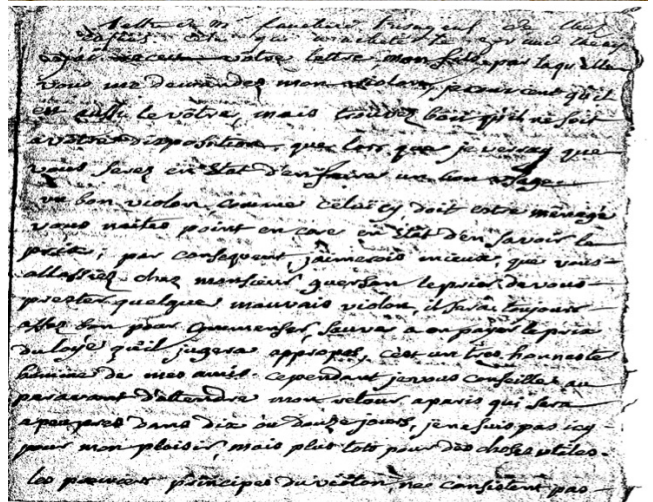 Lettre de Mr
j'ai receu votre lettre, mon fils, par laquelle
vous me demandez mon violon, je conviens qu'il
est aussy le vôtre, mais trouvez bon qu'il ne soit
a votre disposition que lors que je verray que
vous serez en état d'en faire un bon usage
un bon violon comme celuicy doit estre ménagé
vous n'aites point encore en état d'en savoir le
prix; par consequent j'aimerois mieux que vous
allassiez chez monsieur guersan le prier de vous
prester quelque mauvais violon, il sera toujours
assez bon pour commenser, sauver a en payer le prix
du loye qu'il jugera appropos, c'est un tres honneste
homme de mes amis. cependant je vous conseille au
paravant d'attendre mon retour a paris qui sera
a peu pres dans dix ou douze jours, je ne suis pas icy
pour mon plaisir, mais plus tots pour des choses utiles.
les premiers principes du violon, ne consistent pas